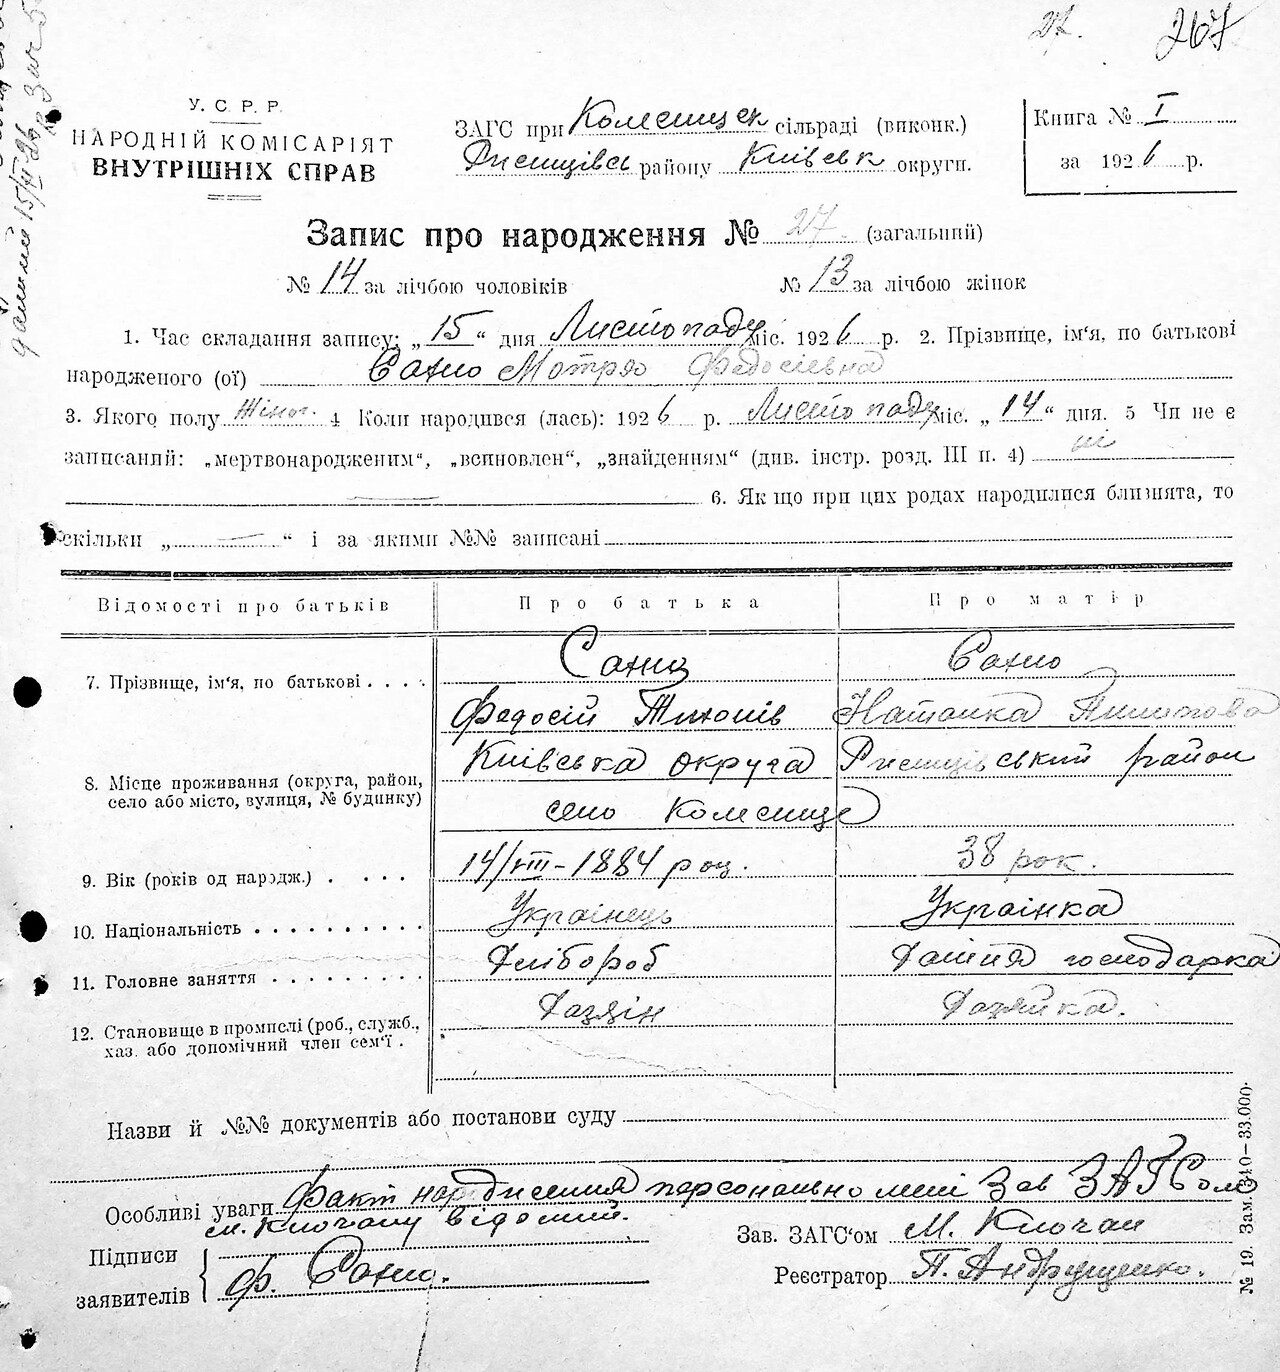 27. 267
У. С. Р. Р.
НАРОДНІЙ КОМІСАРІЯТ
ВНУТРІШНІХ СПРАВ
ЗАГС при сільраді (виконк.)
району Київськ округи.
Книга № I
за 1926 р.
Запис про народження № 27. (загальний)
№ 14 за лічбою чоловіків № 13 за лічбою жінок
1. Час складання запису: „15“ дня Листопаду міс. 1926 р. 2. Прізвище, ім'я, по батькові
народженого (ої) Сахно Мотря Федосіевна
3. Якого полу Жіноч. 4 Коли народився (лась): 1926 р. Листопаду міс. „14“ дня. 5 Чи не є
записаний: „мертвонародженим“, „всиновлен“, „знайденням“ (див. інстр. розд. III п. 4) ні
6. Якщо при цих родах народилися близнята, то
скільки „ — “ і за якими №№ записані
Відомості про батьків Про батька Про матір
7. Прізвище, ім'я, по батькові . . . . Сахно Сахно
Федосій Тихонів Наталка Пилипова
8. Місце проживання (округа, район, село або місто, вулиця, № будинку) Київська округа район
село
9. Вік (років од народж.) . . . . 14/VIII-1884 роц. 38 рок.
10. Національність . . . . . . . . . . Українець Українка
11. Головне заняття . . . . . . . . Хлібороб Хатня господарка
12. Становище в промислі (роб., служб., хаз. або допомічний член сем'ї . Хазяїн Хазяйка.
Назви й №№ документів або постанови суду
Особливі уваги Факт народження персонально мені Зав ЗАГСом
м. Клочану відомий.
Підписи
заявителів Ф. Сахно.
Зав. ЗАГС'ом М. Клочан
Реєстратор П. Андрущенко.
№ 19. Зам. 340—33.000.